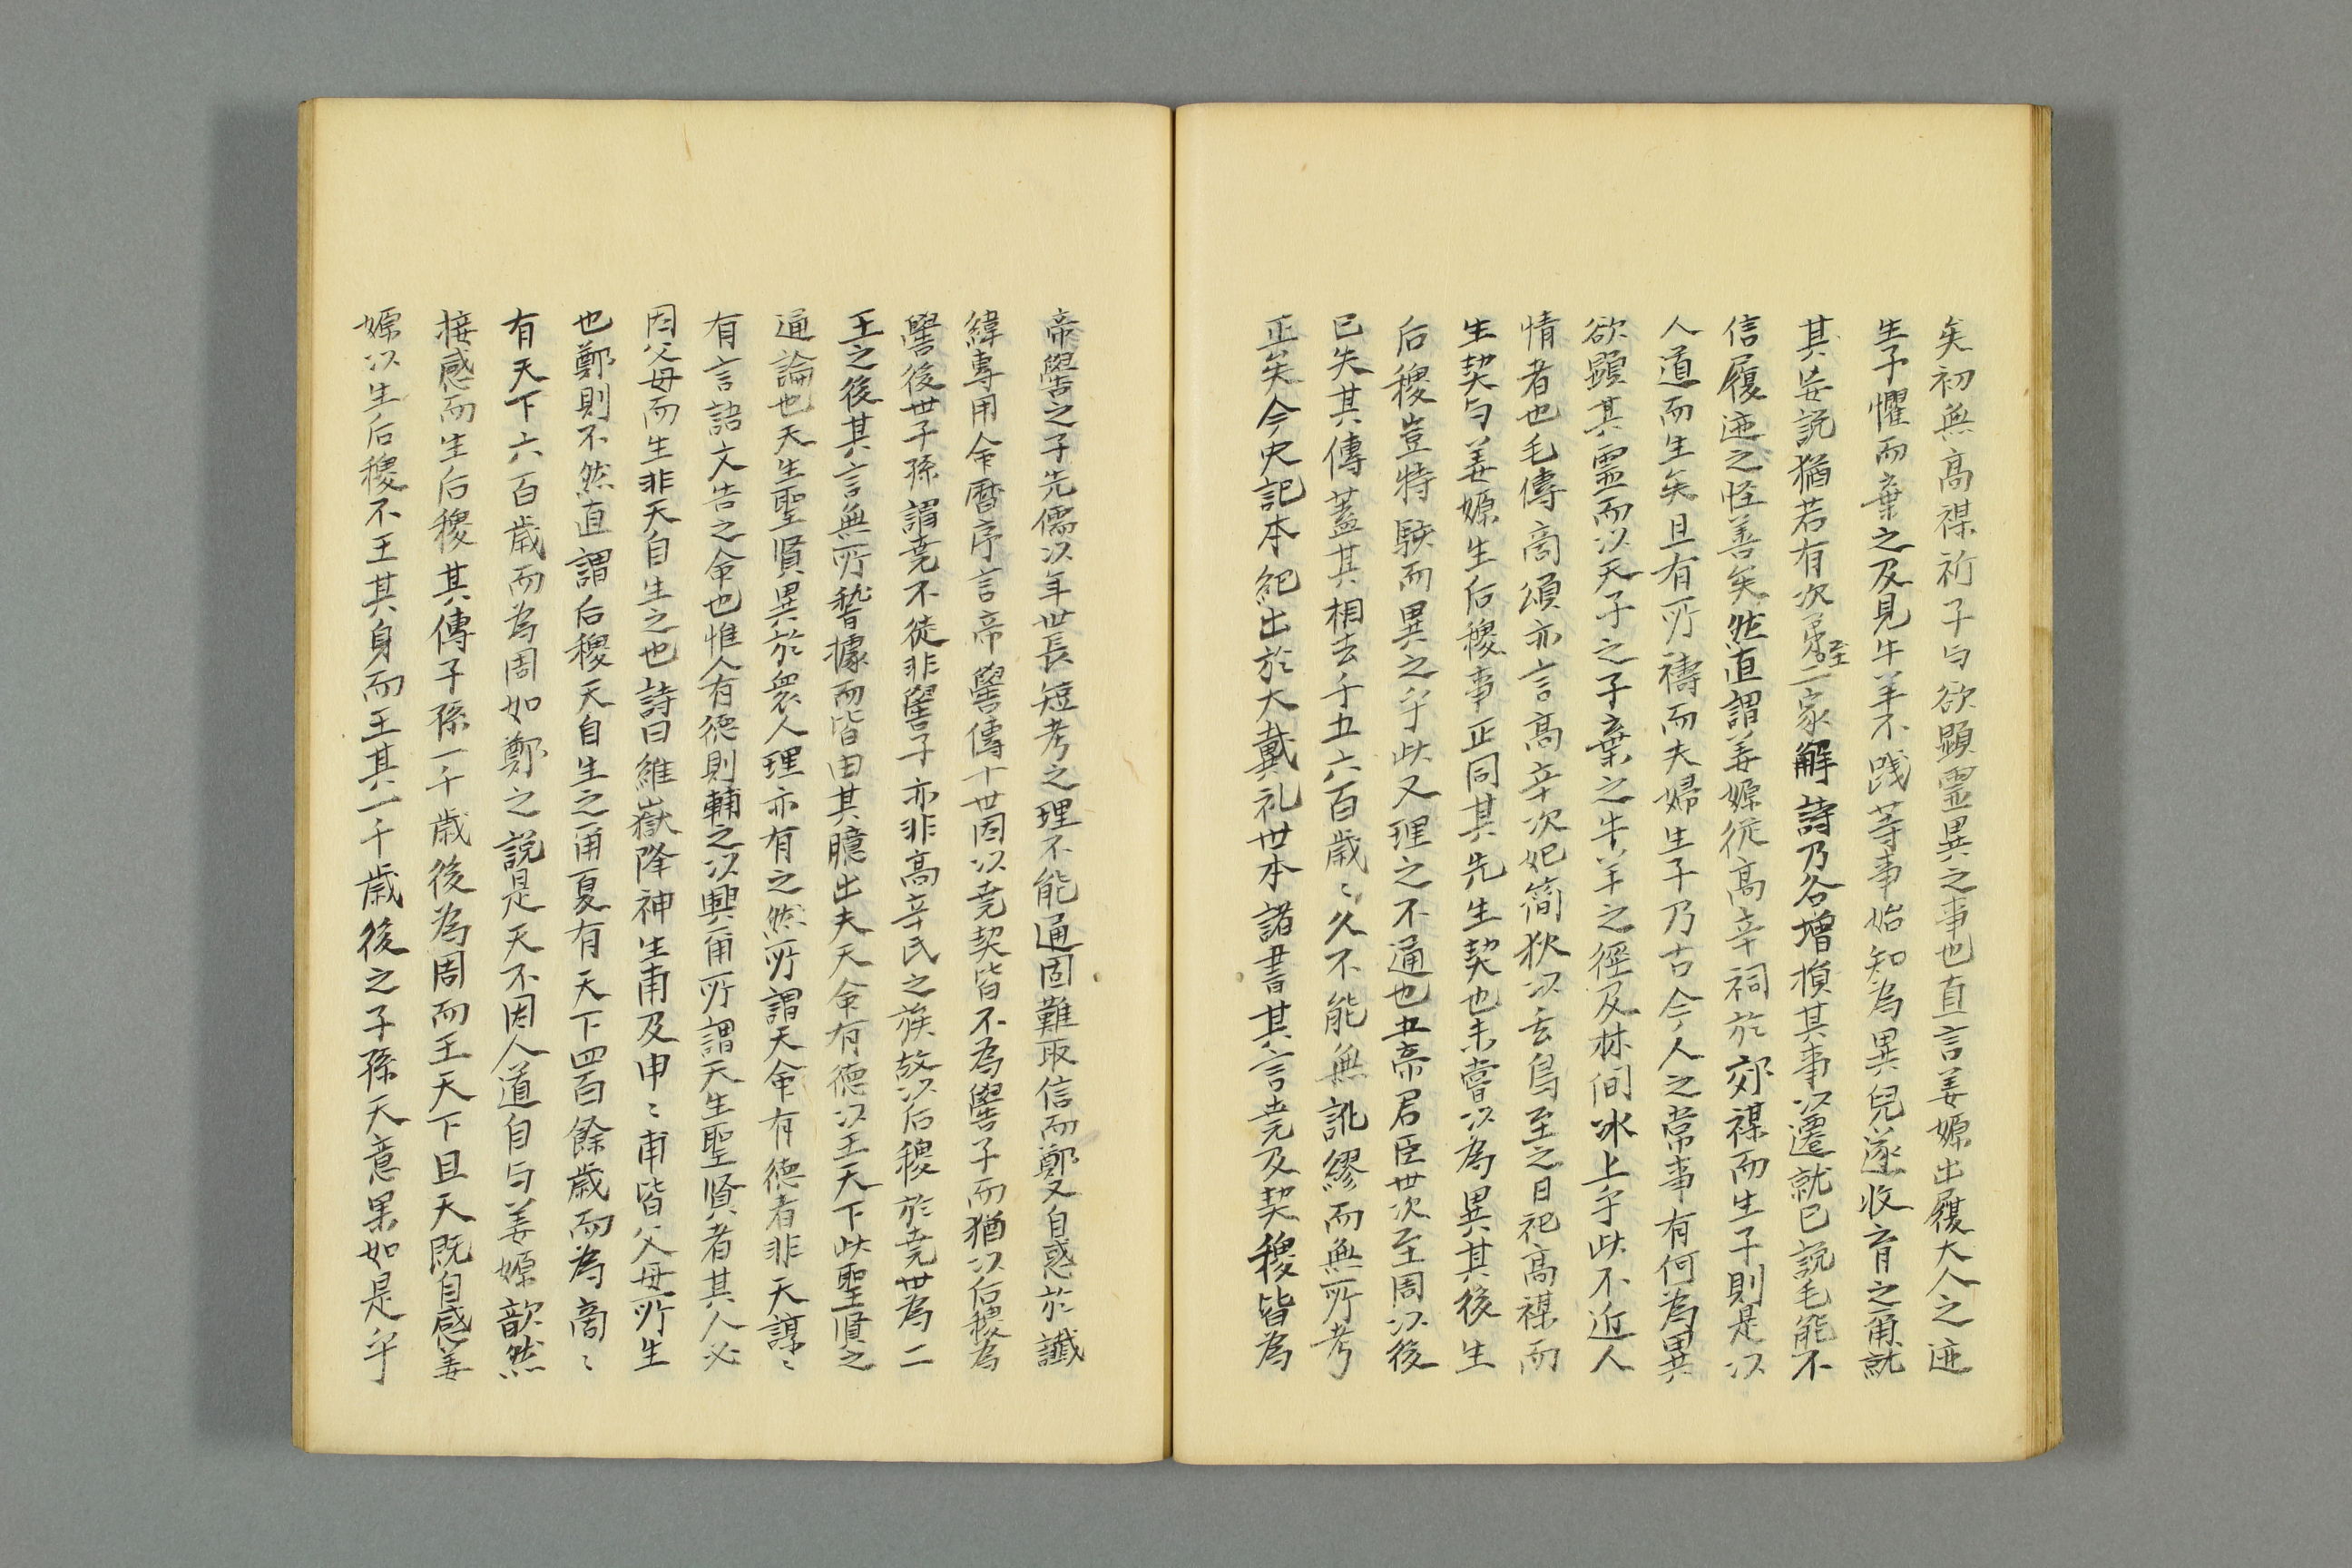 矣初無高禖祈子与欲顕霊異之事也直言姜嫄出履大人之迹
生子懼而棄之及見牛羊不践等事始知為異兒遂收育之爾就
其妄説猶若有次第至二家解詩乃各増損其事以遷就已説毛能不
信履迹之怪善矣然直謂姜嫄従高辛祠於郊禖而生子則是以
人道而生矣且有所禱而夫婦生子乃古今人之常事有何為異
欲顕其霊而以天子之子棄之牛羊之徑及林間冰上乎此不近人
情者也毛傳商頌亦言高辛次妃簡狄以玄鳥至之日祀高禖而
生契与姜嫄生后稷事正同其先生契也未嘗以為異其後生
后稷豈特駭而異之乎此又理之不通也五帝君臣世次至周以後
已失其傳蓋其相去千五六百歳〻久不能無訛繆而無所考
正矣今史記本紀出於大戴礼世本諸書其言堯及契稷皆為
帝嚳之子先儒以年世長短考之理不能通固難取信而鄭又自惑於讖
緯專用命暦序言帝嚳傳十世因以堯契皆不為嚳子而猶以后稷為
嚳後世子孫謂堯不徒非嚳子亦非高辛氏之族故以后稷於堯世為二
王之後其言無所稽據而皆由其臆出夫天命有徳以王天下此聖賢之
通論也天生聖賢異於衆人理亦有之然所謂天命有徳者非天諄〻
有言語文告之命也惟人有徳則輔之以興爾所謂天生聖賢者其人必
因父母而生非天自生之也詩曰維嶽降神生甫及申〻甫皆父母所生
也鄭則不然直謂后稷天自生之爾夏有天下四百餘歳而為商〻
有天下六百歳而為周如鄭之説是天不因人道自与姜嫄歆然
接感而生后稷其傳子孫一千歳後為周而王天下且天既自感姜
嫄以生后稷不王其身而王其一千歳後之子孫天意果如是乎